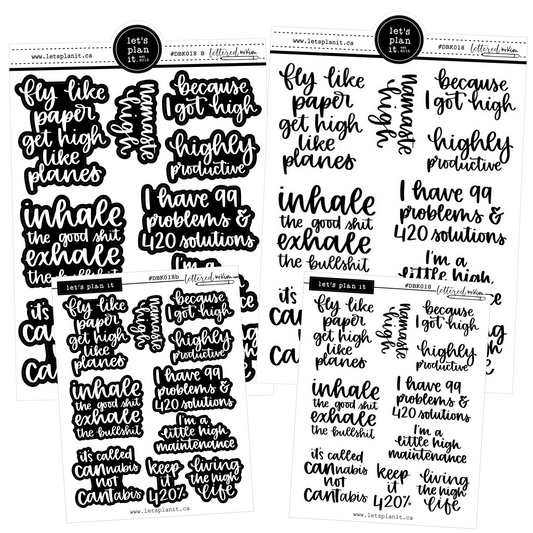 let's
plan
it.
www.letsplanit.ca
#DBK018 B
lettered
fly like
paper
get high
like
planes
namaste
high
because
I got high
highly
productive
inhale
the good shit
exhale
the bullshit
I have 99
problems &
420 solutions
I'm a
let's
plan
it.
www.letsplanit.ca
#DBK018
lettered
fly like
paper
get high
like
planes
namaste
high
because
I got high
highly
productive
inhale
the good shit
exhale
the bullshit
I have 99
problems &
420 solutions
I'm a
little high
let's plan it
#DBK018b
lettered
fly like
paper
get high
like
planes
namaste
high
because
I got high
highly
productive
inhale
the good shit
exhale
the bullshit
I have 99
problems &
420 solutions
I'm a
little high
maintenance
it's called
CANnabis
not
CANTabis
keep
it
420%
living
the high
life
www.letsplanit.ca
let's plan it
#DBK018
lettered
fly like
paper
get high
like
planes
namaste
high
because
I got high
highly
productive
inhale
the good shit
exhale
the bullshit
I have 99
problems &
420 solutions
I'm a
little high
maintenance
it's called
CANnabis
not
CANTabis
keep
it
420%
living
the high
life
www.letsplanit.ca